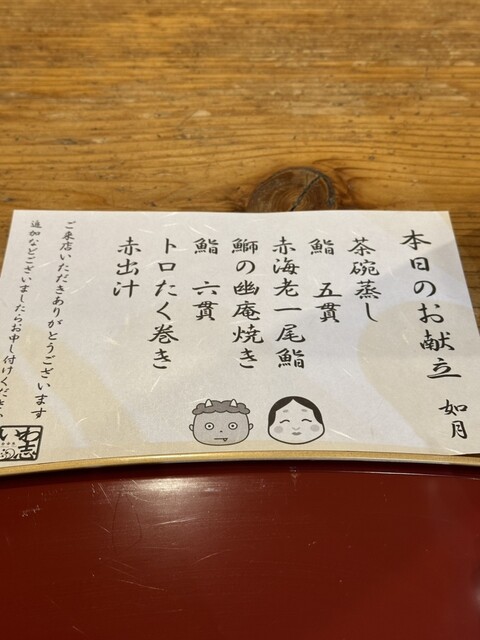 本日のお献立 如月
茶碗蒸し
鮨 五貫
赤海老一尾鮨
鰤の幽庵焼き
鮨 六貫
トロたく巻き
赤出汁
ご来店いただきありがとうございます
追加などございましたらお申し付けくださ